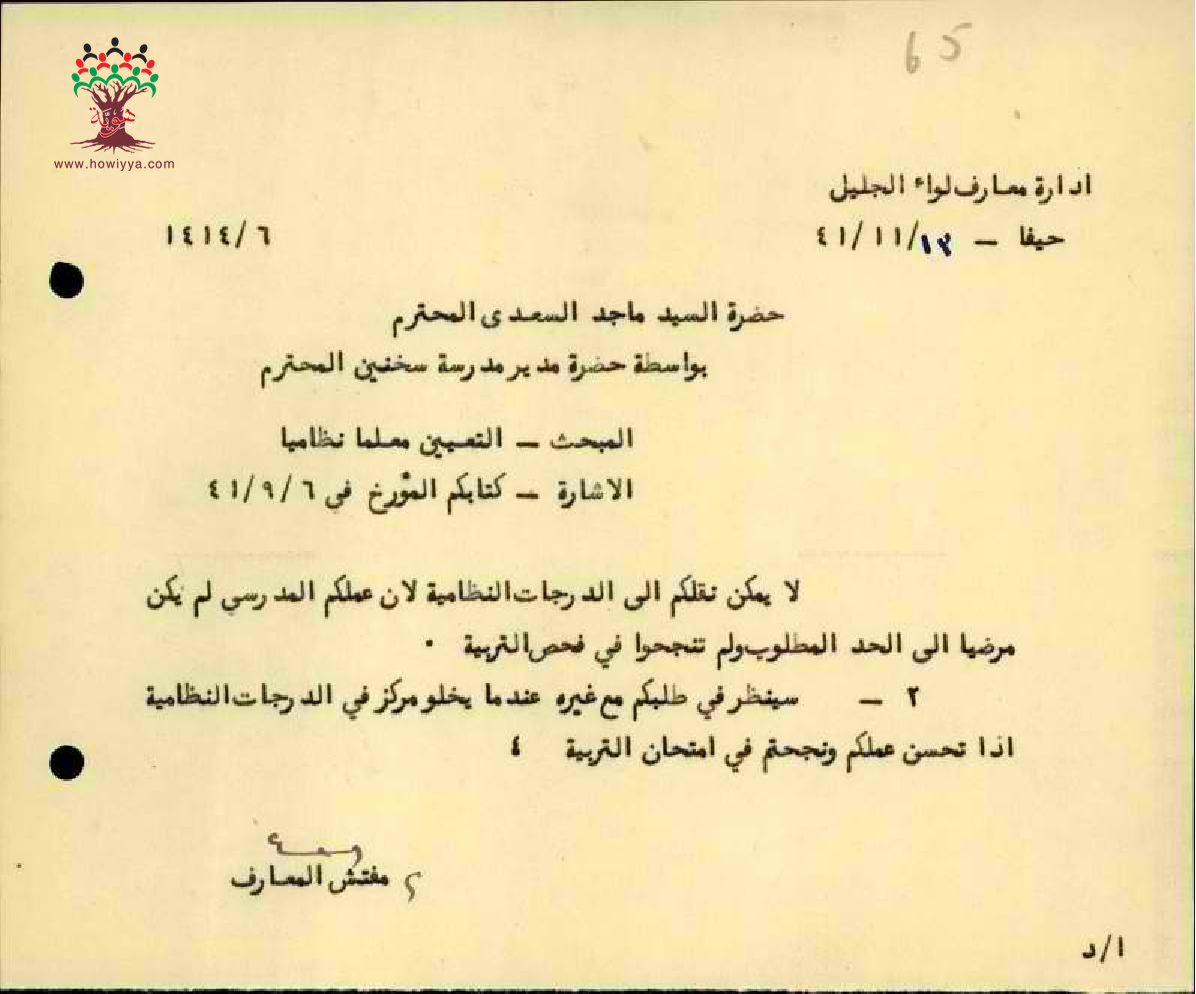 65
هوية
www.howiyya.com
ادارة معارف لواء الجليل
حيفا – ١٣/١١/٤١
١٤١٤/٦
حضرة السيد ماجد السعدى المحترم
بواسطة حضرة مدير مدرسة سخنين المحترم
المبحث – التعيين معلما نظاميا
الاشارة – كتابكم المؤرخ فى ٤١/٩/٦
لا يمكن نقلكم الى الدرجات النظامية لان عملكم المدرسي لم يكن
مرضيا الى الحد المطلوب ولم تنجحوا في فحص التربية ٠
٢ – سينظر في طلبكم مع غيره عندما يخلو مركز في الدرجات النظامية
اذا تحسن عملكم ونجحتم في امتحان التربية ٤
مفتش المعارف
ا/د